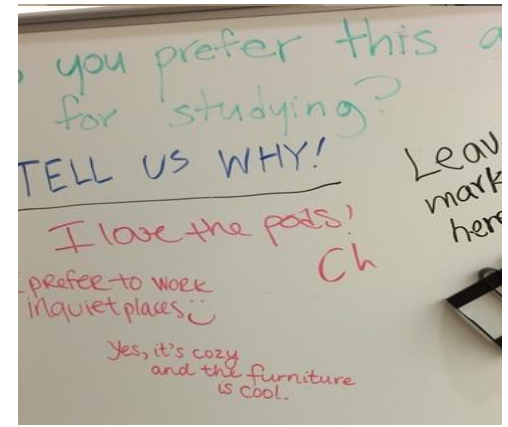 you prefer this a
for studying?
TELL US WHY!
Leav
mark
here
I love the pods!
Ch
prefer to work
in quiet places
Yes, it's cozy
and the furniture
is cool.